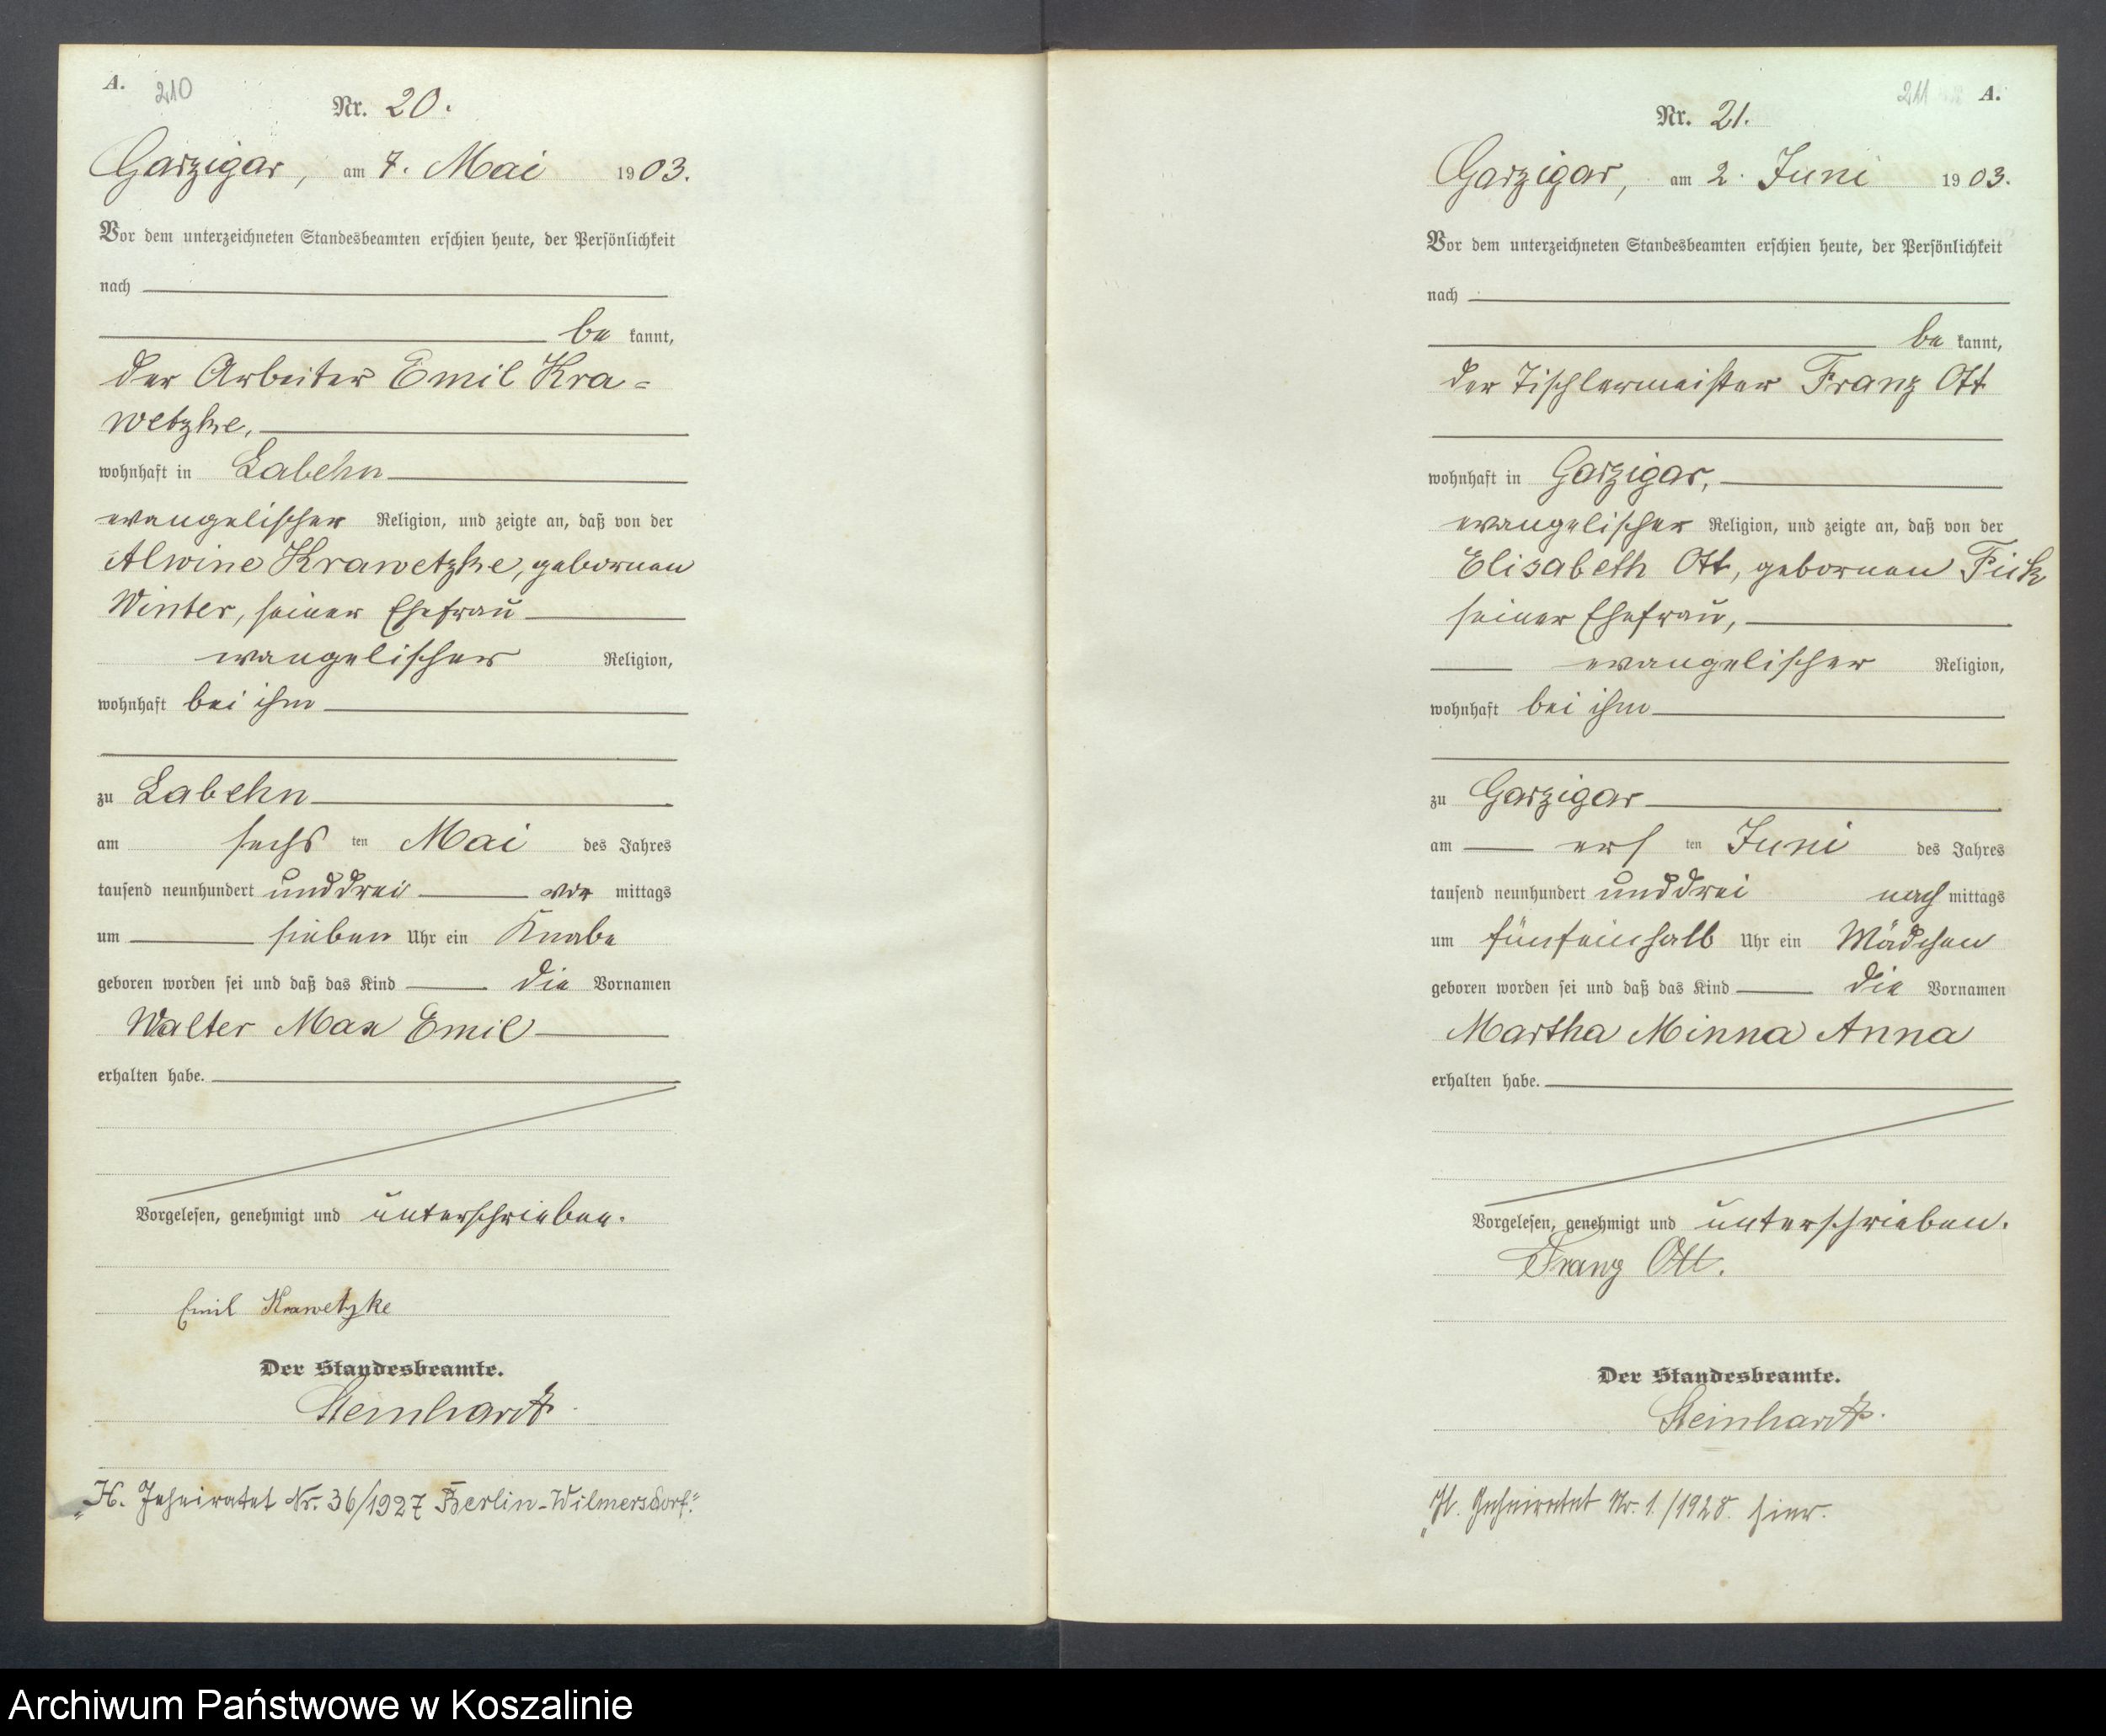 A. 210
Nr. 20.
Garzigar, am 7. Mai 1903.
Vor dem unterzeichneten Standesbeamten erschien heute, der Persönlichkeit
nach
be kannt,
der Arbeiter Emil Kra=
wetzke,
wohnhaft in Labehn
evangelischer Religion, und zeigte an, daß von der
Alwine Krawetzke, gebornen
Winter, seiner Ehefrau
evangelischer Religion,
wohnhaft bei ihm
zu Labehn
am sechs ten Mai des Jahres
tausend neunhundert unddrei vor mittags
um sieben Uhr ein Knabe
geboren worden sei und daß das Kind die Vornamen
Walter Max Emil
erhalten habe.
Vorgelesen, genehmigt und unterschrieben.
Emil Krawetzke
Der Standesbeamte.
Steinhardt
"H. Geheiratet Nr. 36/1927 Berlin-Wilmersdorf."
211 A.
Nr. 21.
Garzigar, am 2. Juni 1903.
Vor dem unterzeichneten Standesbeamten erschien heute, der Persönlichkeit
nach
be kannt,
der Tischlermeister Franz Ott
wohnhaft in Garzigar,
evangelischer Religion, und zeigte an, daß von der
Elisabeth Ott, gebornen
seiner Ehefrau,
evangelischer Religion,
wohnhaft bei ihm
zu Garzigar
am ers ten Juni des Jahres
tausend neunhundert unddrei nach mittags
um fünfeinhalb Uhr ein Mädchen
geboren worden sei und daß das Kind die Vornamen
Martha Minna Anna
erhalten habe.
Vorgelesen, genehmigt und unterschrieben.
Franz Ott.
Der Standesbeamte.
Steinhardt.
"H. Geheiratet Nr. 1./1928. hier.
Archiwum Państwowe w Koszalinie